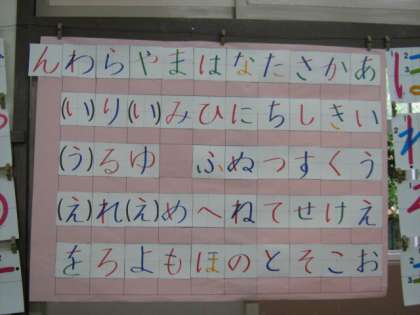 あいうえお
かきくけこ
さしすせそ
たちつてと
なにぬねの
はひふへほ
まみめも
や(い)ゆ(え)よ
らりるれろ
わ(い)(う)(え)を
ん